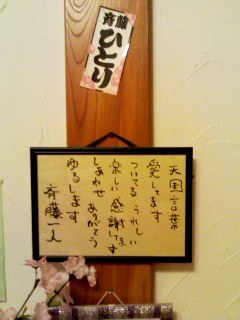 斉藤
ひとり
天国言葉
愛してます
ついてる うれしい
楽しい 感謝してます
しあわせ ありがとう
ゆるします
斉藤一人